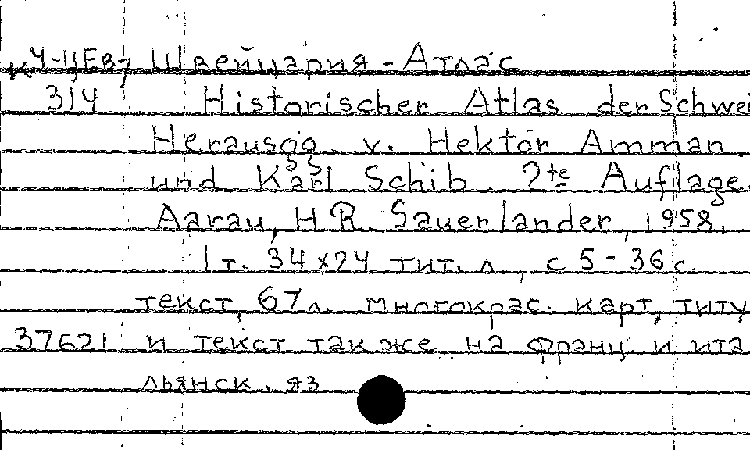 Ч-ЦЕв-7 Швейцария - Атлас
314 Historischer Atlas der Schwei
Herausgg. v. Hektor Amman
und Karl Schib. 2te Auflage
Aarau, H.R. Sauerlander, 1958.
1 т. 34 x 24 тит. л., с 5 - 36 с.
текст, 67 л. многокрас. карт, титу
37621 и текст также на франц и ита
льянск. яз